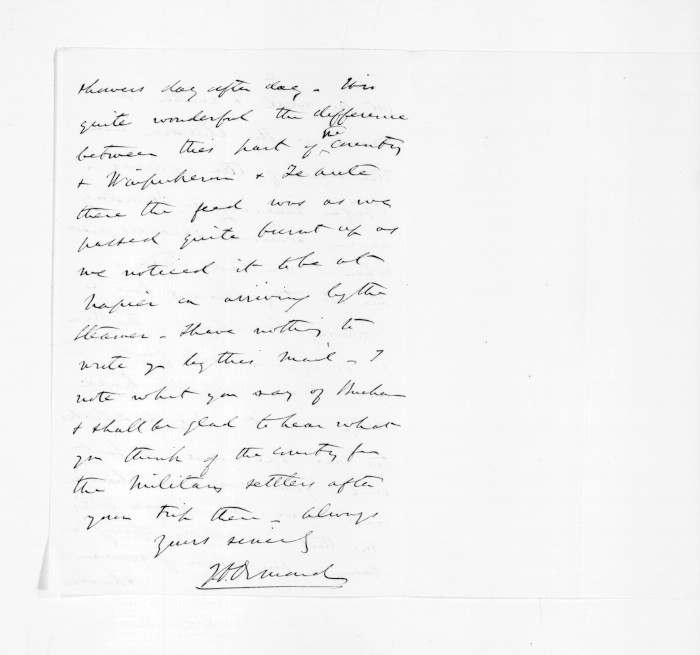 showers day after day - It is
quite wonderful the difference
between this part of the country
& Waipukurau & Te Aute
there the feed was as we
passed quite burnt up as
we noticed it to be at
Napier on arriving by the
Steamer - I have nothing to
write you by this mail - I
note what you say of
& shall be glad to hear what
you think of the country for
the Military settlers after
your trip there - Always
yours sincerely
J D Ormond